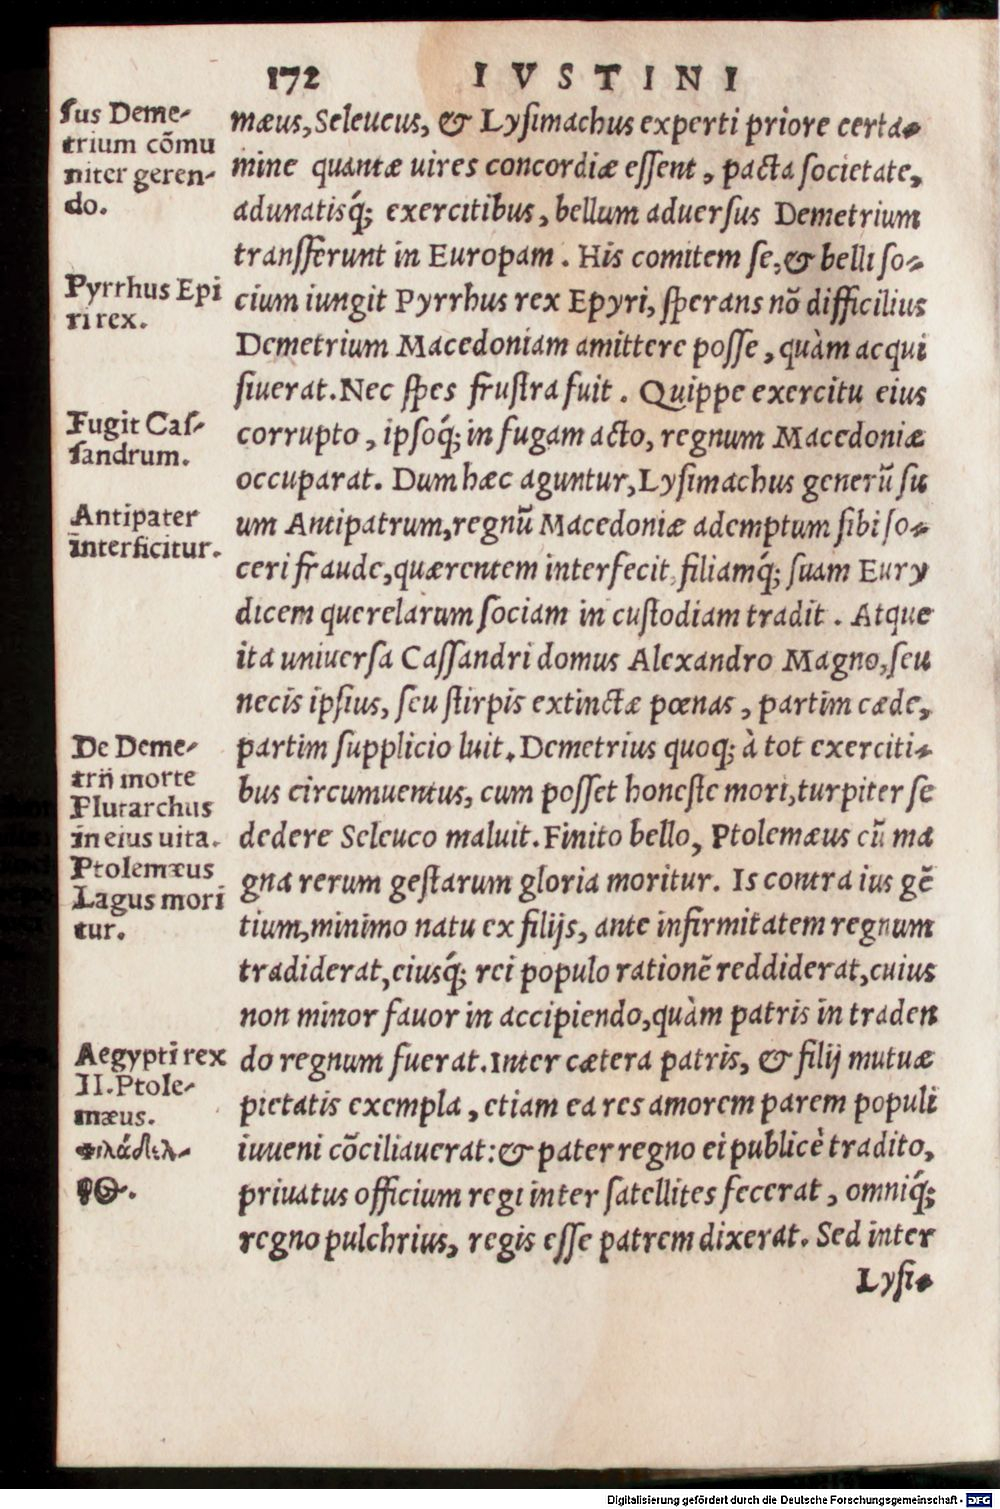 172 IVSTINI
sus Deme-
trium cõmu
niter geren-
do.
Pyrrhus Epi
ri rex.
Fugit Cas-
sandrum.
Antipater
interficitur.
De Deme-
trij morte
Plutarchus
in eius uita.
Ptolemæus
Lagus mori
tur.
Aegypti rex
II. Ptole-
mæus.
Φιλάδελ-
φος.
mæus, Seleucus, & Lysimachus experti priore certa-
mine quantæ uires concordiæ essent, pacta societate,
adunatisq́; exercitibus, bellum aduersus Demetrium
transferunt in Europam. His comitem se, & belli so-
cium iungit Pyrrhus rex Epyri, sperans nõ difficilius
Demetrium Macedoniam amittere posse, quàm acqui
siuerat. Nec spes frustra fuit. Quippe exercitu eius
corrupto, ipsoq́; in fugam acto, regnum Macedoniæ
occuparat. Dum hæc aguntur, Lysimachus generũ su
um Antipatrum, regnũ Macedoniæ ademptum sibi so-
ceri fraude, quærentem interfecit, filiamq́; suam Eury
dicem querelarum sociam in custodiam tradit. Atque
ita uniuersa Cassandri domus Alexandro Magno, seu
necis ipsius, seu stirpis extinctæ pœnas, partim cæde,
partim supplicio luit. Demetrius quoq; à tot exerciti-
bus circumuentus, cum posset honeste mori, turpiter se
dedere Seleuco maluit. Finito bello, Ptolemæus cũ ma
gna rerum gestarum gloria moritur. Is contra ius gẽ
tium, minimo natu ex filijs, ante infirmitatem regnum
tradiderat, eiusq́; rei populo rationẽ reddiderat, cuius
non minor fauor in accipiendo, quàm patris in traden
do regnum fuerat. Inter cætera patris, & filij mutuæ
pietatis exempla, etiam ea res amorem parem populi
iuueni cõciliauerat: & pater regno ei publicè tradito,
priuatus officium regi inter satellites fecerat, omniq́;
regno pulchrius, regis esse patrem dixerat. Sed inter
Lysi-
Digitalisierung gefördert durch die Deutsche Forschungsgemeinschaft - DFG